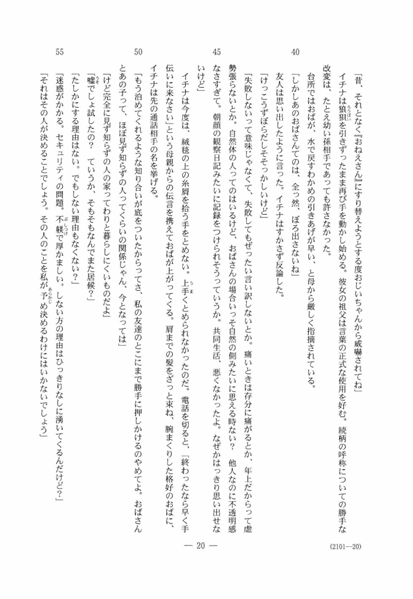 「昔、それとなく『おねえさん』にすり替えようとする度おじいちゃんから威嚇されてね」
イチナは狼狽を引きずったまま再び手を動かし始める。彼女の祖父は言葉の正式な使用を好む。続柄の呼称についての勝手な
改変は、たとえ幼い孫相手であっても許さなかった。
40
台所ではおばが、水で戻すわかめの引きあげが早い、と母から厳しく指摘されている。
「しかしあのおばさんてのは、全っ然、ぼろ出さないね」
友人は思い出したように言った。イチナはすかさず反論した。
「けっこうずぼらだしそそっかしいけど」
「失敗しないって意味じゃなくて、失敗してもぜったい言い訳しないとか。痛いときは存分に痛がるとか、年上だからって虚
勢張らないとか。自然体の人ってのはいるけど、おばさんの場合いっそ自然の側みたいに思える時ない? 他人なのに不透明感
45
なさすぎて。朝顔の観察日記みたいに記録をつけられそうっていうか。共同生活、悪くなかったよ。なぜかはっきり思い出せな
いけど」
イチナは今度は、絨毯の上の糸屑を拾う手をとめない。上手くとめられなかったのだ。電話を切ると、「終わったなら早く手
うま
伝いに来なさい」という母親からの伝言を携えておばが上がってくる。肩までの髪をざっと束ね、腕まくりした格好のおばに、
イチナは先の通話相手の名を挙げる。
50
「もう泊めてくれるような知り合いが底をついたからってさ、私の友達のとこにまで勝手に押しかけるのやめてよ。おばさん
とあの子って、ほぼ見ず知らずの人ってくらいの関係じゃん、今となっては」
「けど完全に見ず知らずの人の家ってわりと暮らしにくいものだよ」
「嘘でしょ試したの? ていうか、そもそもなんでまた居候?」
うそ
「たしかにする理由はない。でもしない理由もなくない?」
55
「迷惑がかかる。セキュリティの問題。不躾で厚かましい。しない方の理由はひっきりなしに湧いてくるんだけど?」
ぶしつけ
「それはその人が決めることでしょう。その人のことを私が予め決めるわけにはいかないでしょう」
あらかじ
― 20 ―
(2101―20)